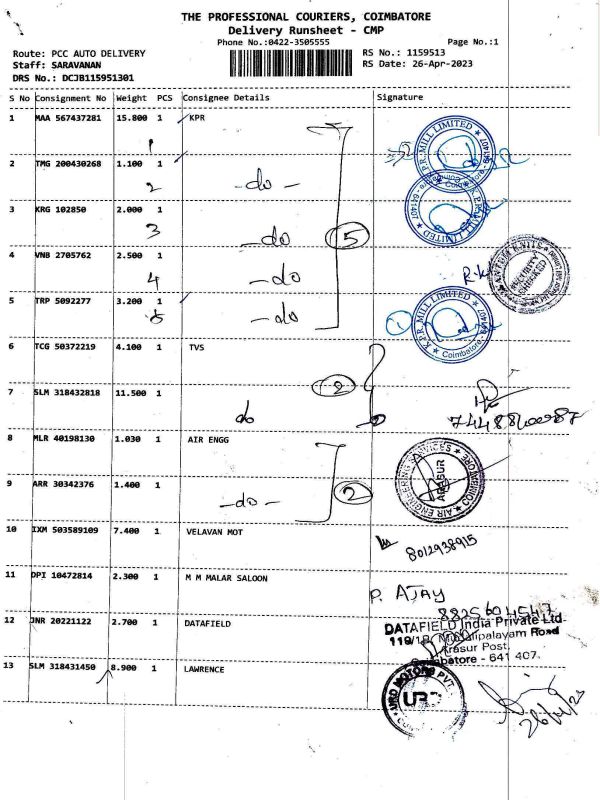 THE PROFESSIONAL COURIERS, COIMBATORE
Delivery Runsheet - CMP
Phone No.:0422-3505555 Page No.:1
Route: PCC AUTO DELIVERY RS No.: 1159513
Staff: SARAVANAN RS Date: 26-Apr-2023
DRS No.: DCJB115951301
S No Consignment No Weight PCS Consignee Details Signature
1 MAA 567437281 15.800 1 KPR
1
2 TMG 200430268 1.100 1
2 -do-
3 KRG 102850 2.000 1
3 -do
5
4 VNB 2705762 2.500 1
4 -do
5 TRP 5092277 3.200 1
5 -do
K.P.R. MILL LIMITED
Coimbatore - 641407
SECURITY CHECKED
6 TCG 50372219 4.100 1 TVS
2
7 SLM 318432818 11.500 1
do
8 MLR 40198130 1.030 1 AIR ENGG
AIR ENGINEERING SERVICES
ARASUR
COIMBATORE
9 ARR 30342376 1.400 1
-do- 2
10 IXM 503589109 7.400 1 VELAVAN MOT
8012938915
11 DPI 10472814 2.300 1 M M MALAR SALOON
P. AJAY
12 JNR 20221122 2.700 1 DATAFIELD
DATAFIELD India Private Ltd
Road
Arasur Post,
Coimbatore - 641 407.
13 SLM 318431450 8.900 1 LAWRENCE
URO MOTORS PVT.
26/4/23